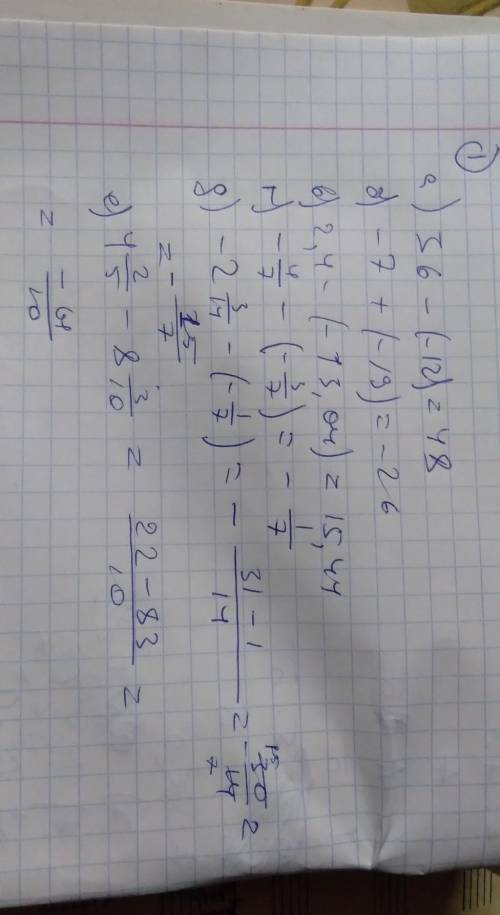 ①
а) 36 - (-12) = 48
б) -7 + (-19) = -26
в) 2,4 - (-13,04) = 15,44
г) -4/7 - (-3/7) = -1/7
д) -2 3/14 - (-1/7) = - (31 - 1)/14 = - 30/14 15 7 =
= - 15/7
е) 4 2/5 - 8 3/10 = (22 - 83)/10 =
= -61/10